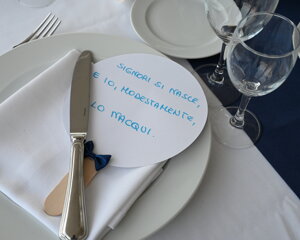 SIGNORI SI NASCE,
E IO, MODESTAMENTE,
LO NACQUI.